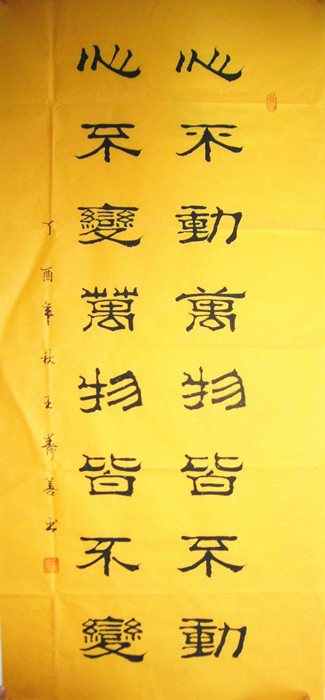 心不動萬物皆不動
心不變萬物皆不變
丁酉年秋王壽善书